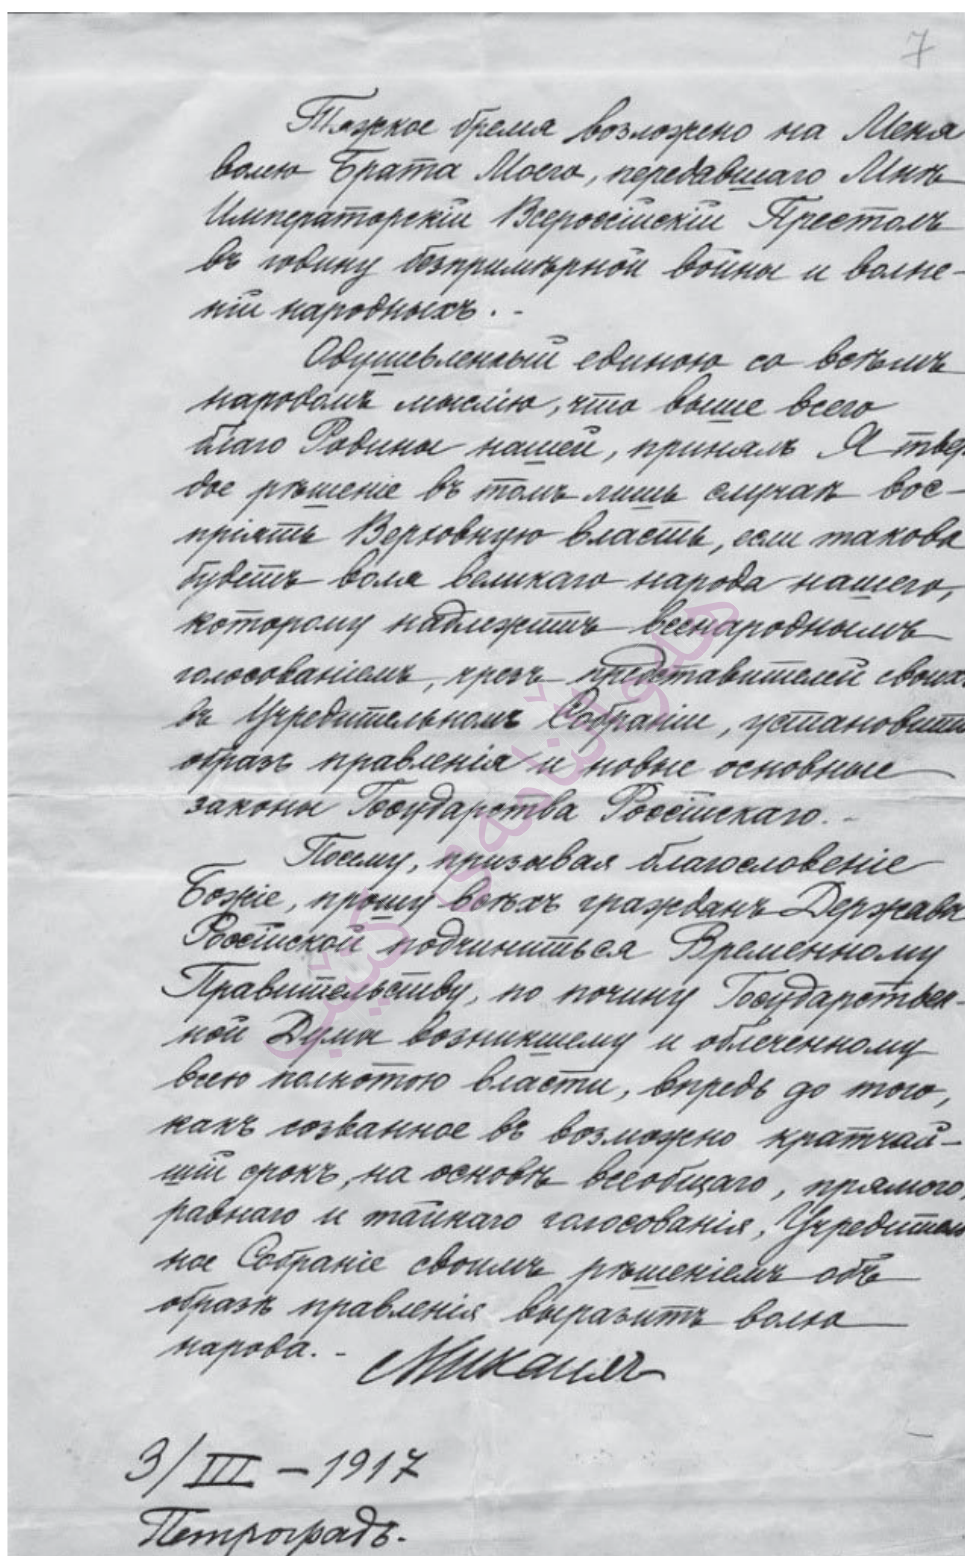 7
Тяжкое бремя возложено на Меня
волею Брата Моего, передавшаго Мнѣ
Императорскій Всероссійскій Престолъ
въ годину безпримѣрной войны и волне-
ній народныхъ. -
Одушевленный единою со всѣмъ
народомъ мыслію, что выше всего
благо Родины нашей, принялъ Я твер
дое рѣшеніе въ томъ лишь случаѣ вос-
пріять Верховную власть, если такова
будетъ воля великаго народа нашего,
которому надлежитъ всенароднымъ
голосованіемъ, чрезъ представителей своихъ
въ Учредительномъ Собраніи, установить
образъ правленія и новые основные
законы Государства Россійскаго. -
Посему, призывая благословеніе
Божіе, прошу всѣхъ гражданъ Державы
Россійской подчиниться Временному
Правительству, по почину Государствен-
ной Думы возникшему и облеченному
всею полнотою власти, впредь до того,
какъ созванное въ возможно кратчай-
шій срокъ, на основѣ всеобщаго, прямого,
равнаго и тайнаго голосованія, Учредитель
ное Собраніе своимъ рѣшеніемъ объ
образѣ правленія выразитъ волю
народа. -
Михаилъ
3/III - 1917
Петроградъ.